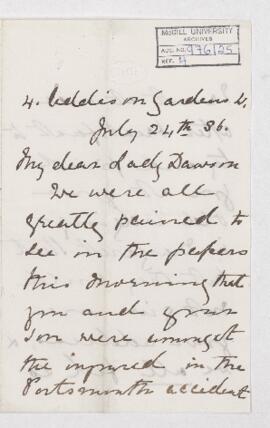 McGILL UNIVERSITY
ARCHIVES
ACC. NO. 976/25
REF. 4
4. Addison Gardens W.
July 24th 86.
My dear Lady Dawson
We were all
greatly pained to
see in the papers
this morning that
you and your
son were amongst
the injured in the
Portsmouth accident